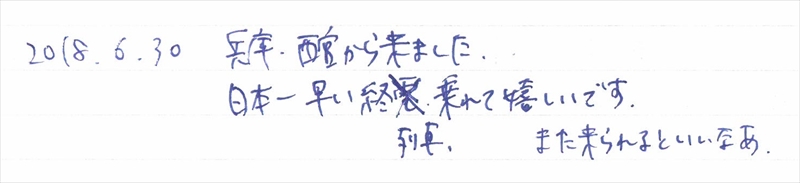 2018.6.30 兵庫・西宮から来ました.
日本一早い終 乗れて嬉しいです.
列車、 また来られるといいなあ.